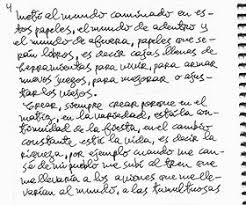 4
metió al mundo caminado en es-
tos papeles, el mundo de adentro y
el mundo de afuera, papeles que se-
rán libros, es decir cajas llenas de
herramientas para vivir, para armar
nuevos juegos, para mejorar o ajus-
tar los viejos.
Crear, siempre crear porque en el
matiz, en la variedad, está la con-
tinuidad de la fiesta, en el cambio
constante está la vida, es decir la
riqueza, por ejemplo cuando me can-
sé de mi pueblo me subí al tren que
me llevaría a los aviones que me lle-
varían al mundo, a las tumultuosas